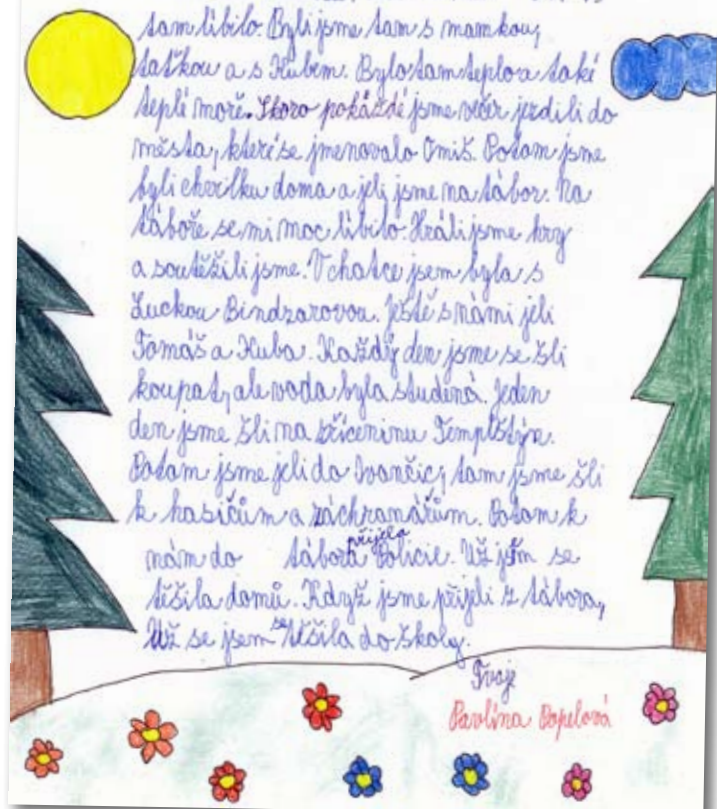 tam líbilo. Byli jsme tam s mamkou,
taťkou a s Kubem. Bylo tam teplo a také
teplí moře. Skoro pokáždé jsme večer jezdili do
města, které se jmenovalo Omiš. Potom jsme
byli chvilku doma a jeli jsme na tábor. Na
táboře se mi moc líbilo. Hráli jsme hry
a soutěžili jsme. V chatce jsem byla s
Luckou Bindzarovou. Ještě s námi jeli
Tomáš a Kuba. Každý den jsme se šli
koupat, ale voda byla studéná. Jeden
den jsme šli na zříceninu Templštýn.
Potom jsme jeli do Ivančic, tam jsme šli
k hasičům a záchranářům. Potom k
nám do tábora přijela Policie. Už jsem se
těšila domů. Když jsme přijeli z tábora,
Už se jsem se těšila do školy.
Tvoje
Pavlína Popelová